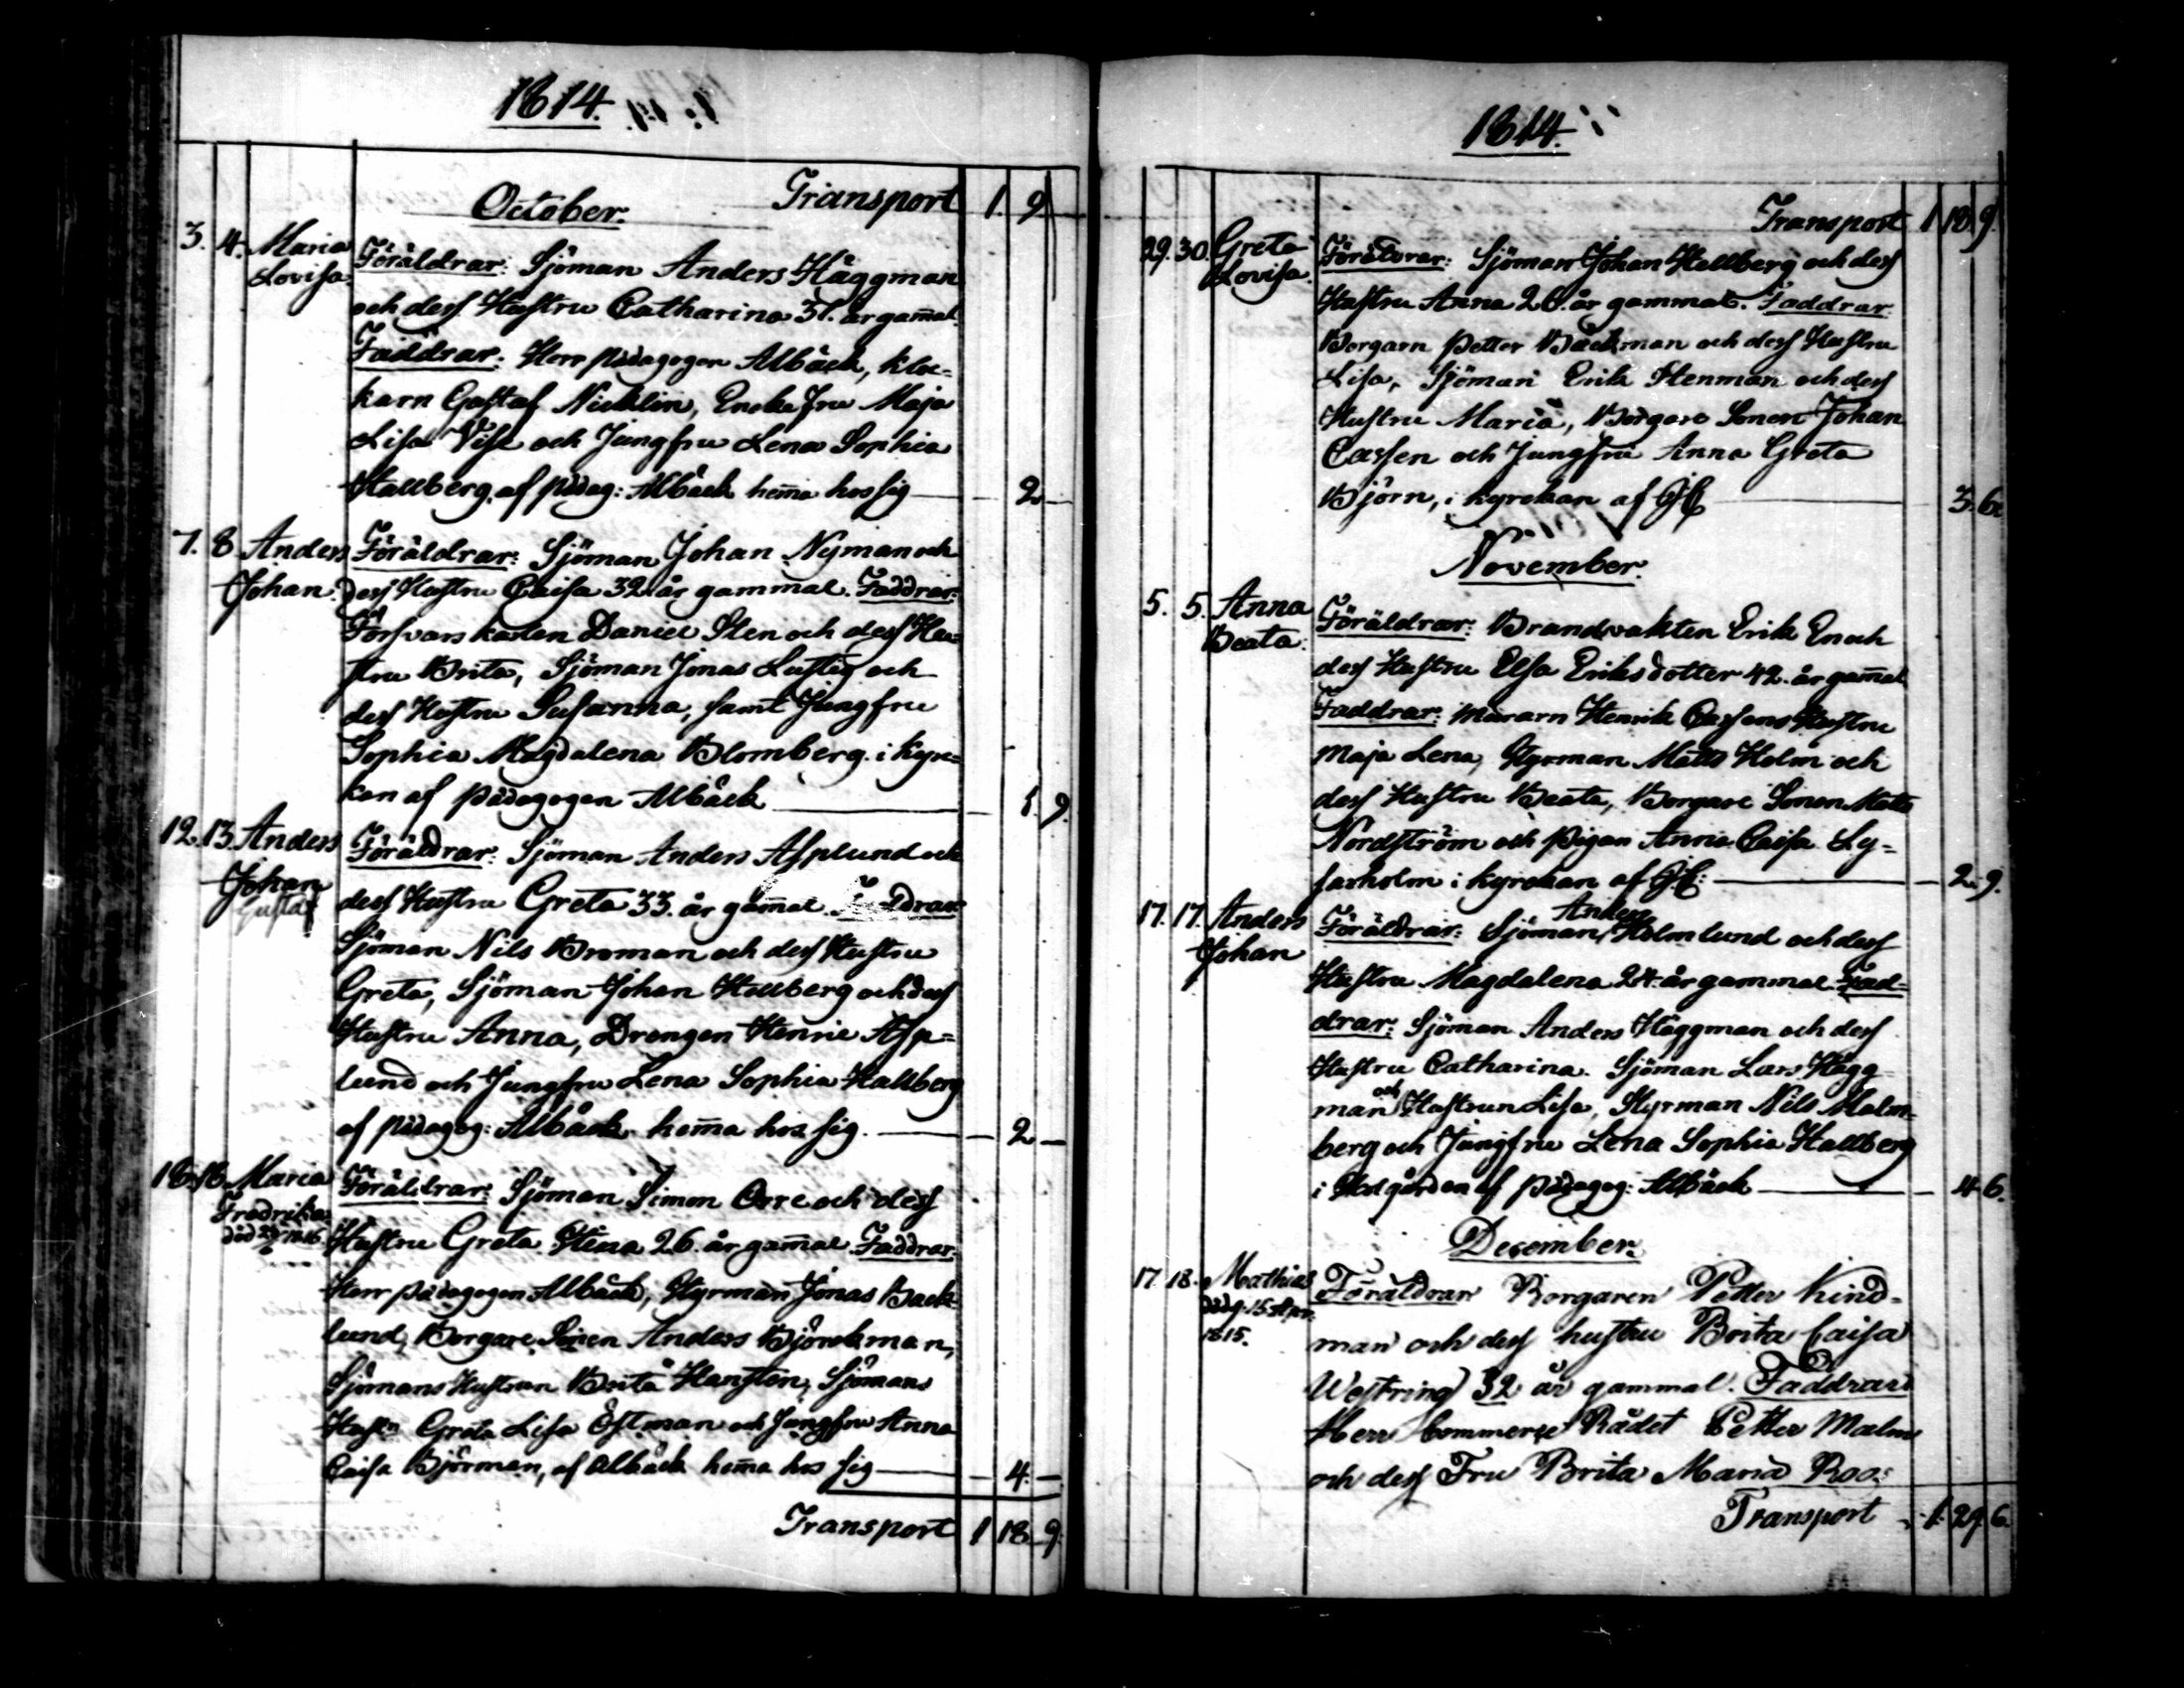 1814.
October. Transport 1. 9
3. 4. Maria Föräldrar: Sjöman Anders Häggman
Lovisa och dess Hustru Catharina 37. år gamal.
Faddrar: Herr Pädagogen Albäck, kloc=
karn Gustaf Nicklin, Encke fru Maja
Lisa och Jungfru Lena Sophia
Hallberg. af pädag: Albäck hema hos sig — 2 —
7. 8 Anders Föräldrar: Sjöman Johan Nyman och
Johan. dess Hustru Caisa 32 år gammal. Faddrar:
Försvars karlen Daniel Sten och dess Hu=
stru Brita, Sjöman Jonas Lustig och
dess Hustru Susanna, samt Jungfru
Sophia Magdalena Blomberg. i kyr=
kan af pädagogen Albäck — 1. 9.
12. 13. Anders Föräldrar: Sjöman Anders Asplund och
Johan dess Hustru Greta 33. år gamal Faddrar
Gustaf
Sjöman Nils Broman och dess Hustru
Greta, Sjöman Johan Hallberg och dess
Hustru Anna, Drengen Henric Asp=
lund och Jungfru Lena Sophia Hallberg
af pädagog: Albäck hema hos sig. — 2 —
18. 18. Maria Föräldrar: Sjöman Simon Orre och dess
Fredrika Hustru Greta Stina 26. år gamal Faddrar:
död
Herr pädagogen Albäck, Styrman Jonas Back=
lund, Borgare Sonen Anders Björckman,
Sjömans Hustrun Brita Hansten, Sjömans
Hustn Greta Lisa Östman och Jungfru Anna
Caisa Björman, af Albäck hema hos sig — 4. —
Transport 1 18. 9.
1814.
Transport 1 18. 9.
29. 30. Greta Föräldrar: Sjöman Johan Hallberg och dess
Lovisa. Hustru Anna 26. år gammal. Faddrar:
Borgarn Petter Bäckman och dess Hustru
Lisa, Sjöman Erik Stenman och dess
Hustru Maria, Borgare Sonen Johan
Cassen och Jungfru Anna Greta
Björn, i kyrckan af — 3. 6.
November.
5. 5. Anna Föräldrar: Brandvakten Erik Enoch
Beata. dess Hustru Elsa Eriksdotter 42. år gamal
Faddrar: murarn Henrik Cassens Hustru
Maja Lena, Styrman Matts Holm och
dess Hustru Beata, Borgare Sonen Matts
Nordström och Pigan Anna Caisa Ly=
saxholm i kyrckan af — 2. 9.
17. 17. Anders Föräldrar: Sjöman Anders Holmlund och dess
Johan Hustru Magdalena 24 år gammal Fad=
drar: Sjöman Anders Häggman och dess
Hustru Catharina. Sjöman Lars Hägg=
man och Hustrun Lisa, Styrman Nils Malm=
berg och Jungfru Lena Sophia Hallberg
i af Pädagog: Albäck — 4. 6.
December.
17. 18. Mathias Föräldrar Borgaren Petter Kind=
död 9. 15 Apr. man och dess hustru Brita Caisa
1815.
Westring 32 år gammal. Faddrar
Herr Commerce Rådet Petter Malm
och dess Fru Brita Maria Roos
Transport 1. 29. 6.